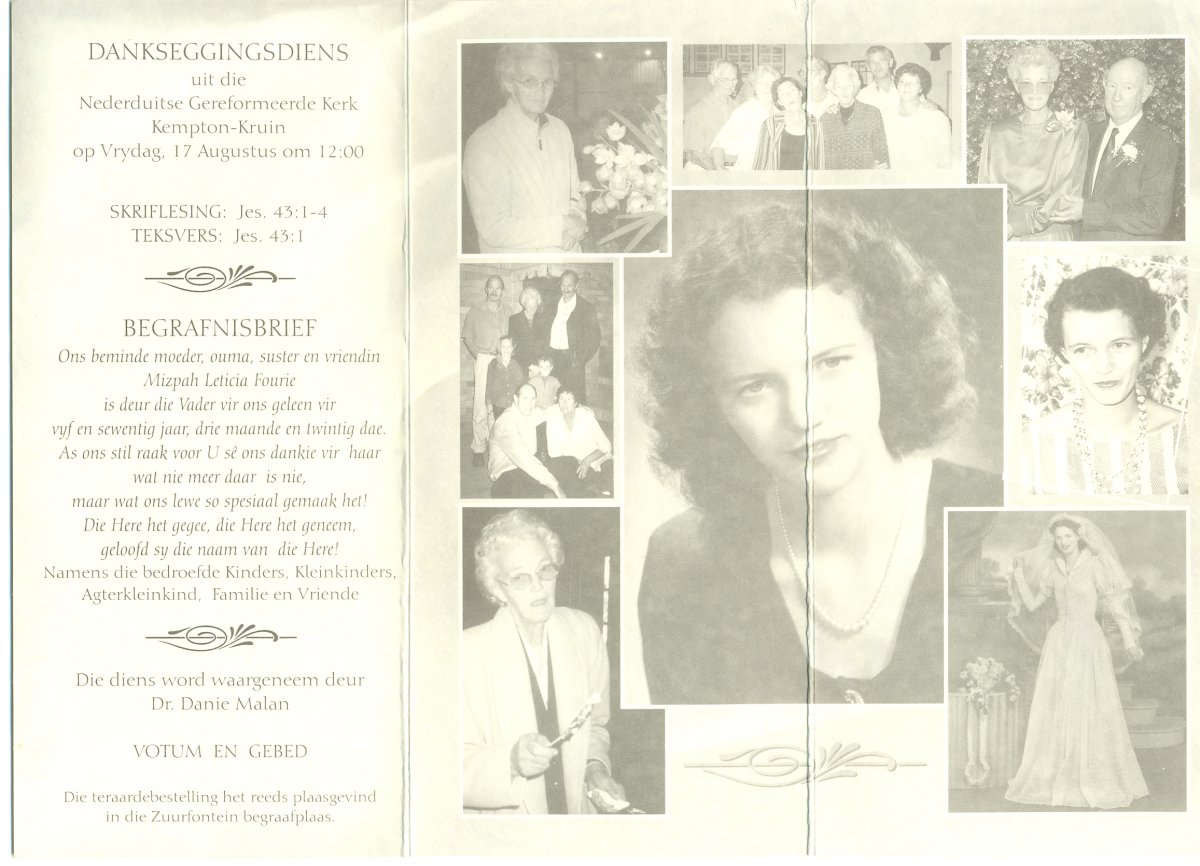 DANKSEGGINGSDIENS
uit die
Nederduitse Gereformeerde Kerk
Kempton-Kruin
op Vrydag, 17 Augustus om 12:00
SKRIFLESING: Jes. 43:1-4
TEKSVERS: Jes. 43:1
BEGRAFNISBRIEF
Ons beminde moeder, ouma, suster en vriendin
Mizpah Leticia Fourie
is deur die Vader vir ons geleen vir
vyf en sewentig jaar, drie maande en twintig dae.
As ons stil raak voor U sê ons dankie vir haar
wat nie meer daar is nie,
maar wat ons lewe so spesiaal gemaak het!
Die Here het gegee, die Here het geneem,
geloofd sy die naam van die Here!
Namens die bedroefde Kinders, Kleinkinders,
Agterkleinkind, Familie en Vriende
Die diens word waargeneem deur
Dr. Danie Malan
VOTUM EN GEBED
Die teraardebestelling het reeds plaasgevind
in die Zuurfontein begraafplaas.